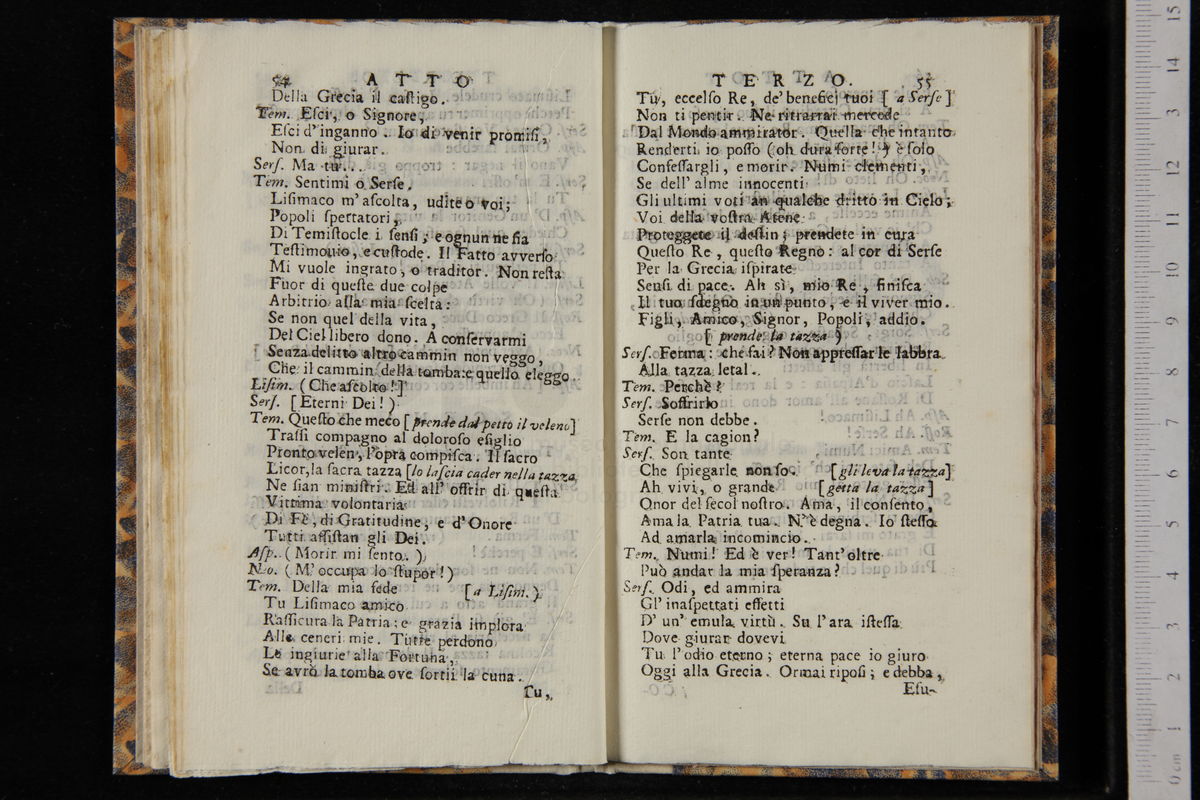 54 ATTO
Della Grecia il caſtigo.
Tem. Eſci, o Signore,
Eſci d'inganno. Io di venir promiſi,
Non di giurar.
Serſ. Ma tu...
Tem. Sentimi o Serſe.
Liſimaco m'aſcolta, udite o voi;
Popoli ſpettatori,
Di Temiſtocle i ſenſi; e ognun ne ſia
Teſtimonio, e cuſtode. Il Fatto avverſo
Mi vuole ingrato, o traditor. Non reſta
Fuor di queſte due colpe
Arbitrio alla mia ſcelta:
Se non quel della vita,
Del Ciel libero dono. A conſervarmi
Senza delitto altro cammin non veggo,
Che il cammin della tomba: e quello eleggo.
Liſim. (Che aſcolto!]
Serſ. [Eterni Dei!)
Tem. Queſto che meco [prende dal petto il veleno]
Traſſi compagno al doloroſo eſiglio
Pronto velen, l'opra compiſca. Il ſacro
Licor, la ſacra tazza [lo laſcia cader nella tazza,
Ne ſian miniſtri. Ed all' offrir di queſta
Vittima volontaria
Di Fè, di Gratitudine, e d'Onore
Tutti aſſiſtan gli Dei.
Aſp. (Morir mi ſento.)
Neo. (M'occupa lo ſtupor!)
Tem. Della mia fede [a Liſim.)
Tu Liſimaco amico
Raſſicura la Patria: e grazia implora
Alle ceneri mie. Tutte perdono
Le ingiurie alla Fortuna,
Se avrò la tomba ove ſortii la cuna.
Tu,
TERZO. 55
Tu, eccelſo Re, de' beneficj tuoi [a Serſe]
Non ti pentir. Ne ritrarrai mercede
Dal Mondo ammirator. Quella che intanto
Renderti io poſſo (oh dura ſorte!) è ſolo
Confeſſargli, e morir. Numi clementi,
Se dell' alme innocenti
Gli ultimi voti an qualche dritto in Cielo;
Voi della voſtra Atene
Proteggete il deſtin; prendete in cura
Queſto Re, queſto Regno: al cor di Serſe
Per la Grecia iſpirate
Senſi di pace. Ah sì, mio Re, finiſca
Il tuo ſdegno in un punto, e il viver mio.
Figli, Amico, Signor, Popoli, addio.
[prende la tazza)
Serſ. Ferma: che fai? Non appreſſar le labbra
Alla tazza letal.
Tem. Perchè?
Serſ. Soffrirlo
Serſe non debbe.
Tem. E la cagion?
Serſ. Son tante
Che ſpiegarle non ſo. [gli leva la tazza]
Ah vivi, o grande [getta la tazza]
Onor del ſecol noſtro. Ama, il conſento,
Ama la Patria tua. N'è degna. Io ſteſſo
Ad amarla incomincio.
Tem. Numi! Ed è ver! Tant'oltre
Può andar la mia ſperanza?
Serſ. Odi, ed ammira
Gl' inaſpettati effetti
D' un' emula virtù. Su l'ara iſteſſa
Dove giurar dovevi
Tu l'odio eterno; eterna pace io giuro
Oggi alla Grecia. Ormai ripoſi; e debba,
Eſu-